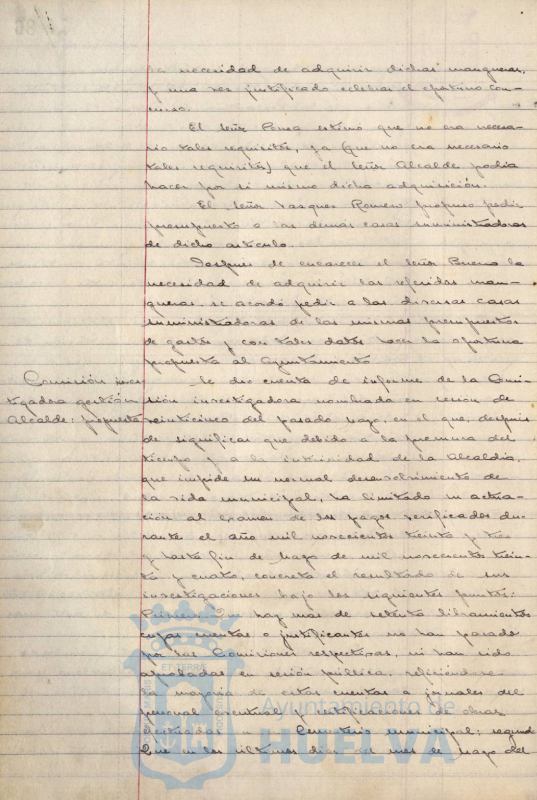 la necesidad de adquirir dichas mangueras,
y una vez justificado celebrar el oportuno con-
curso.
El Señor Ponsa estimó que no era necesa-
rio tales requisitos, ya (que no era necesario
tales requisitos) que el Señor Alcalde podia
hacer por si mismo dicha adquisición.
El Señor Vazquez Romero propuso pedir
presupuesto a las demas casas suministradoras
de dicho articulo.
Despues de encarecer el Señor Bueno la
necesidad de adquirir las referidas man-
gueras, se acordó pedir a las diversas casas
suministradoras de las mismas presupuestos
de gastos y con tales datos hacer la oportuna
propuesta al Ayuntamiento
Comisión inves-
tigadora gestión
Alcalde: propuesta
Se dio cuenta de informe de la Comi-
sión investigadora nombrada en sesion de
veinticinco del pasado Mayo, en el que, despues
de significar que debido a la premura del
tiempo y a la interinidad de la Alcaldia,
que impide un normal desenvolvimiento de
la vida municipal, ha limitado su actua-
ción al examen de los pagos verificados du-
rante el año mil novecientos treinta y tres
y hasta fin de Mayo de mil novecientos trein-
ta y cuatro, concreta el resultado de sus
investigaciones bajo los siguientes puntos:
Primero. Que hay mas de setenta libramientos
cuyas cuentas o justificantes no han pasado
por las Comisiones respectivas, ni han sido
aprobadas en sesión pública, refiriéndose
la mayoria de estas cuentas a jornales del
personal eventual y certificaciones de obras
efectuadas en Cementerio municipal; segundo
Que en los ultimos dias del mes de Mayo del
Ayuntamiento de
HUELVA